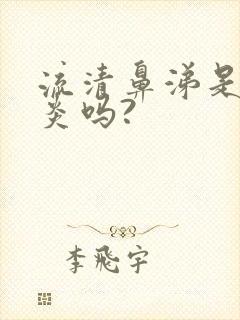 流清鼻涕是
炎吗?
李飛宇